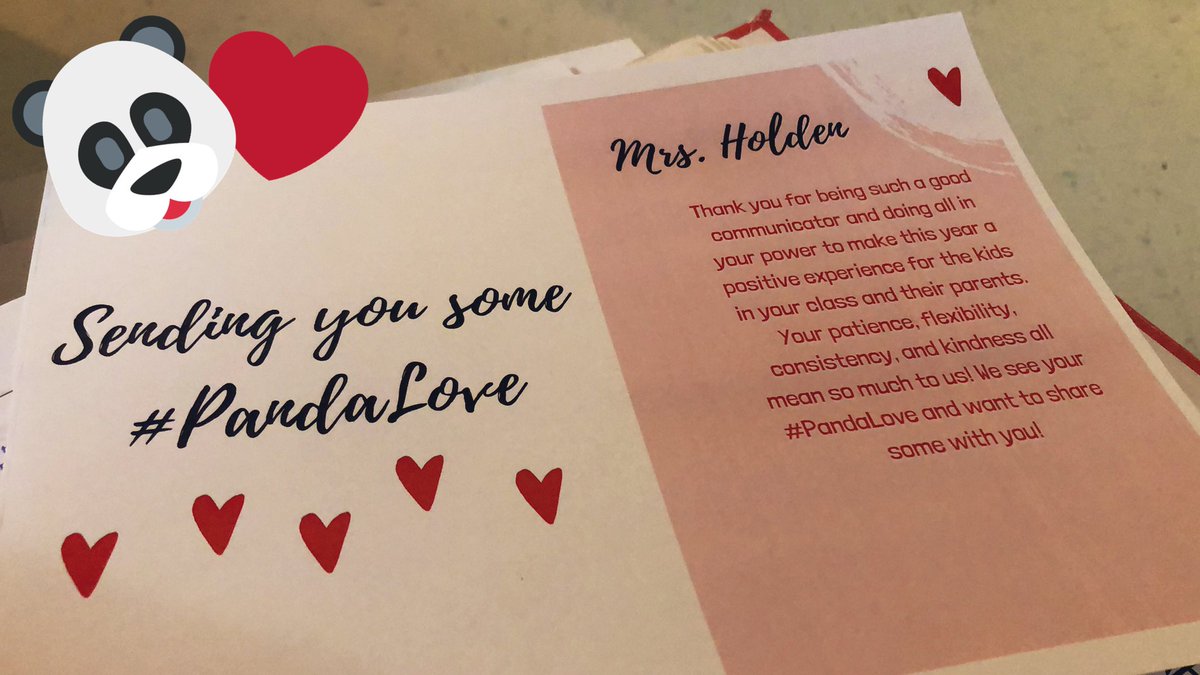 Sending you some
#PandaLove
Mrs. Holden
Thank you for being such a good
communicator and doing all in
your power to make this year a
positive experience for the kids
in your class and their parents.
Your patience, flexibility,
consistency, and kindness all
mean so much to us! We see your
#PandaLove and want to share
some with you!